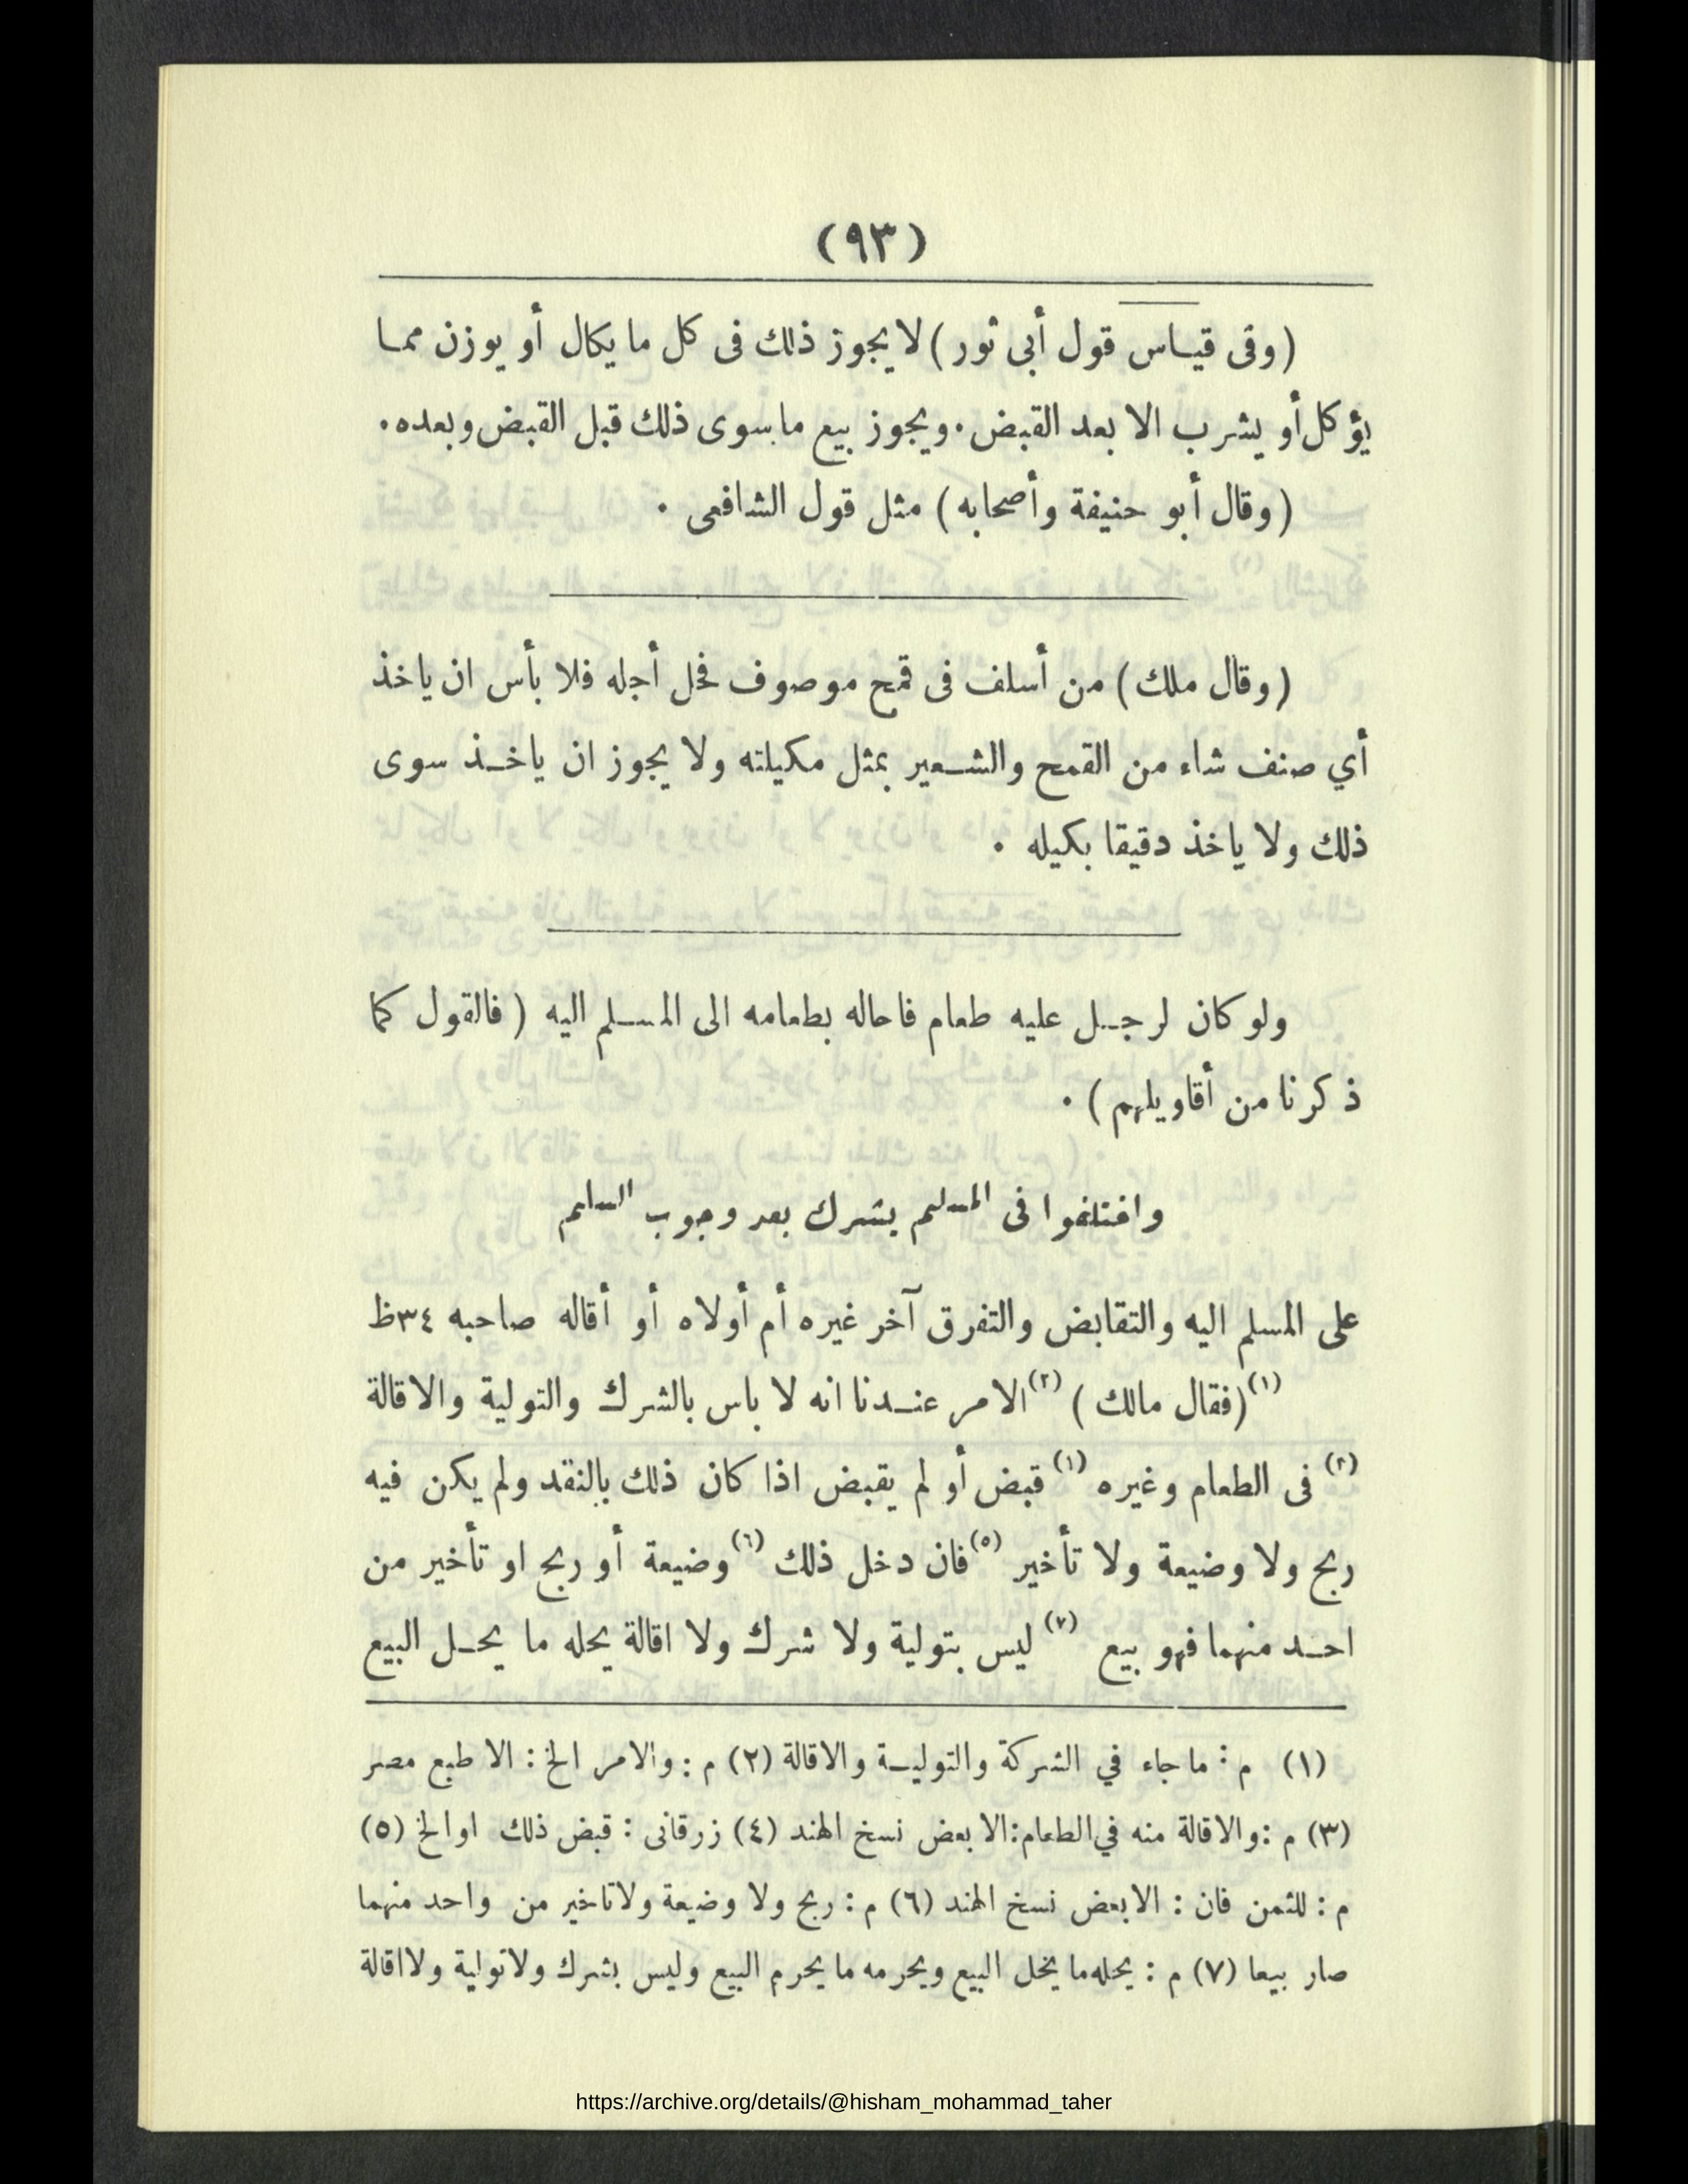 (٩٣)
(وفى قياس قول أبى ثور) لا يجوز ذلك فى كل ما يكال أو يوزن مما
يؤكل أو يشرب الا بعد القبض. ويجوز بيع ما سوى ذلك قبل القبض وبعده.
(وقال أبو حنيفة وأصحابه) مثل قول الشافعى.
(وقال ملك) من أسلف فى قمح موصوف فحل أجله فلا بأس ان ياخذ
أي صنف شاء من القمح والشعير بمثل مكيلته ولا يجوز ان ياخذ سوى
ذلك ولا ياخذ دقيقا بكيله.
ولو كان لرجل عليه طعام فاحاله بطعامه الى المسلم اليه (فالقول كما
ذكرنا من أقاويلهم).
واختلفوا فى المسلم يشرك بعد وجوب السلم
على المسلم اليه والتقابض والتفرق آخر غيره أم أولاه أو أقاله صاحبه ٣٤ظ
(١)(فقال مالك) (٢)الامر عندنا انه لا باس بالشرك والتولية والاقالة
(٢) فى الطعام وغيره (١) قبض أو لم يقبض اذا كان ذلك بالنقد ولم يكن فيه
ربح ولا وضيعة ولا تأخير (٥)فان دخل ذلك (٦)وضيعة أو ربح او تأخير من
احد منهما فهو بيع (٧) ليس بتولية ولا شرك ولا اقالة يحله ما يحل البيع
(١) م : ما جاء في الشركة والتولية والاقالة (٢) م : والامر الخ : الا طبع مصر
(٣) م : والاقالة منه في الطعام : الا بعض نسخ الهند (٤) زرقانى : قبض ذلك او الخ (٥)
م : للثمن فان : الا بعض نسخ الهند (٦) م : ربح ولا وضيعة ولا تاخير من واحد منهما
صار بيعا (٧) م : يحله ما يحل البيع ويحرمه ما يحرم البيع وليس بشرك ولا تولية ولا اقالة
https://archive.org/details/@hisham_mohammad_taher